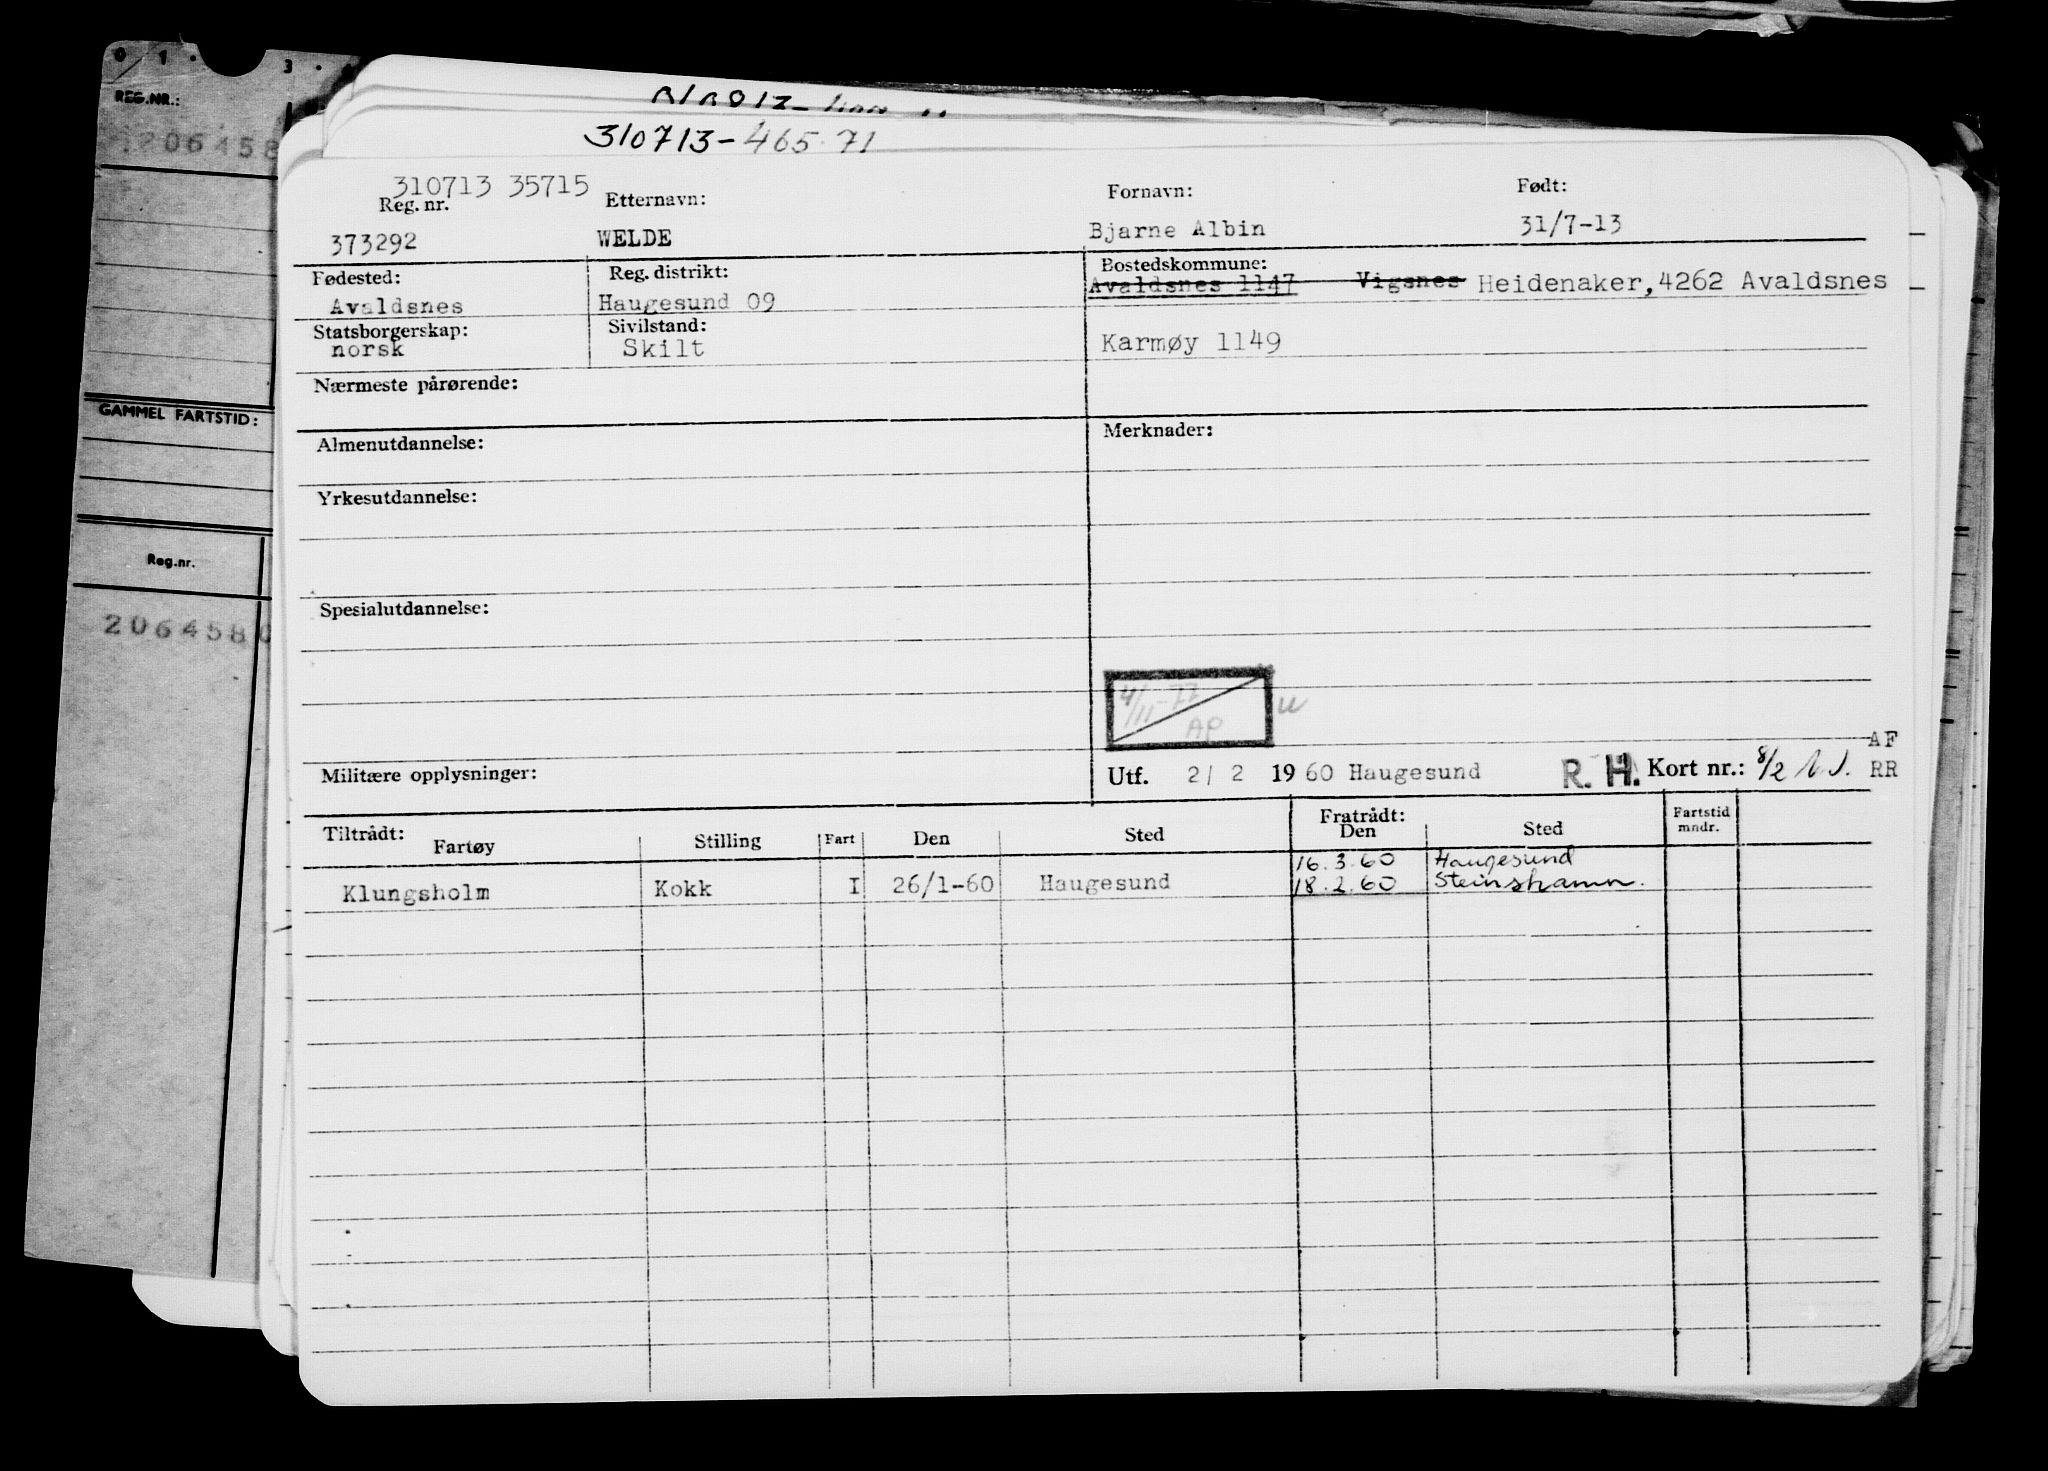 0 1 . 3 .
REG.NR.:
1206458
GAMMEL FARTSTID:
Reg.nr.
2064580
310713-465.71
310713 35715
Reg. nr. Etternavn: Fornavn: Født:
373292 WELDE Bjarne Albin 31/7-13
Fødested: Reg. distrikt: Bostedskommune:
Avaldsnes Haugesund 09 Avaldsnes 1147 Vigsnes Heidenaker,4262 Avaldsnes
Statsborgerskap: Sivilstand:
norsk Skilt Karmøy 1149
Nærmeste pårørende:
Almenutdannelse: Merknader:
Yrkesutdannelse:
Spesialutdannelse:
4/11-77
AP
Militære opplysninger: Utf. 2/ 2 1960 Haugesund R. H. Kort nr.: 8/2 AF
RR
Tiltrådt: Fratrådt:
Fartøy Stilling Fart Den Sted Den Sted Fartstid mndr.
16.3.60 Haugesund
Klungsholm Kokk I 26/1-60 Haugesund 18.2.60 Steinshamn.